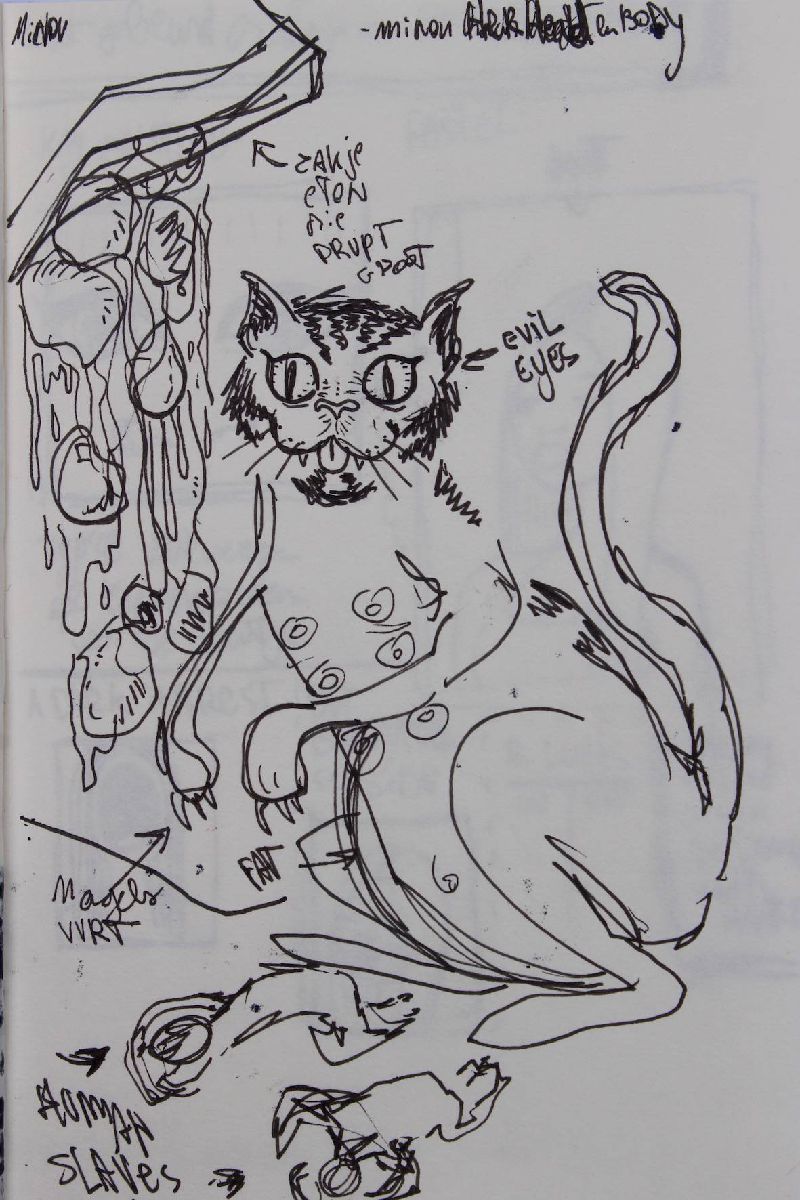 MiNOU
-minou en BODY
ZAKje
eTON
Die
DRUPT
GROOT
EViL
EYES
FAT
Nagels
VVRT
SLAVES